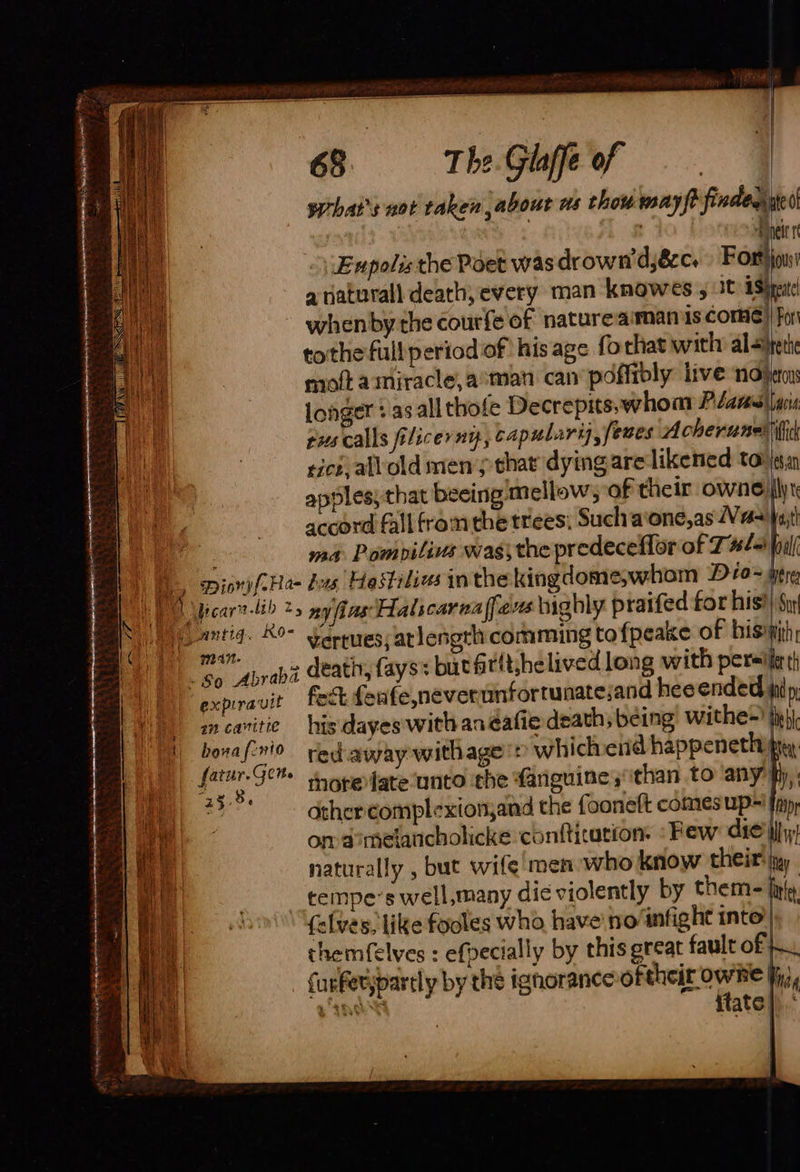 68 The Glaſſe of
what's not taken, about us thou mayſt finde.
Eupolis the Poet was drown'd, &c. For
a naturall death, every man knowes, it is
when by the courſe of nature a man is come
to the full period of his age ſo that with al-
moſt a miracle, a man can poſſibly live no
longer: as all thoſe Decrepits, whom Plau-
tus calls ſilicernij, capularij, ſenes Acherun-
tici, all old men; that dying are likened to
apples, that beeing mellow, of their owne
accord fall from the trees: Such a one, as Nu-
ma Pompilius was, the predeceſſor of Tul-
lus Hoſtilius in the kingdome, whom Dio-
nyſius Halicarnaſſeus highly praiſed for his
vertues, at length comming to ſpeake of his
death, ſays: but firſt, he lived long with per-
fect ſenſe, never unfortunate; and hee ended
his dayes with an eaſie death, being withe-
red away with age: which end happeneth
more late unto the ſanguine, than to any
other complexion, and the ſooneſt comes up-
on a melancholicke conſtitution. Few die
naturally, but wiſe men who know their
tempe's well, many die violently by them-
ſelves, like fooles who have no inſight into
themſelves: eſpecially by this great fault of
ſurfet, partly by the ignorance of their owne
ſtate
Dionyſ. Ha-
licarn. lib 2.
antiq. Ro-
man.
So Abrahā
expiravit
in canitie
bona ſenio
ſatur. Gen.
25. 8.